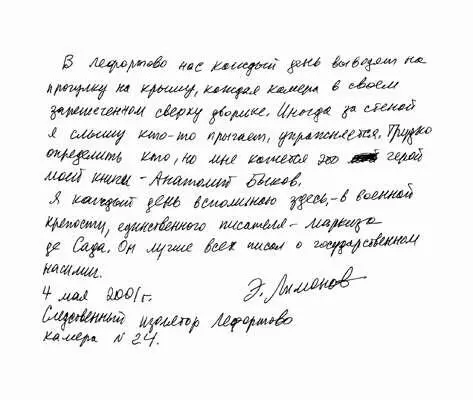 В Лефортово нас каждый день выводят на
прогулку на крышу, каждая камера в своем
зарешеченном сверху дворике. Иногда за стеной
я слышу кто-то прыгает, упражняется. Трудно
определить кто, но мне кажется это герой
моей книги - Анатолий Быков.
Я каждый день вспоминаю здесь, - в военной
крепости, единственного писателя - маркиза
де Сада. Он лучше всех писал о государственном
насилии.
4 мая 2001г. Э. Лимонов
Следственный изолятор Лефортово
камера N 24.